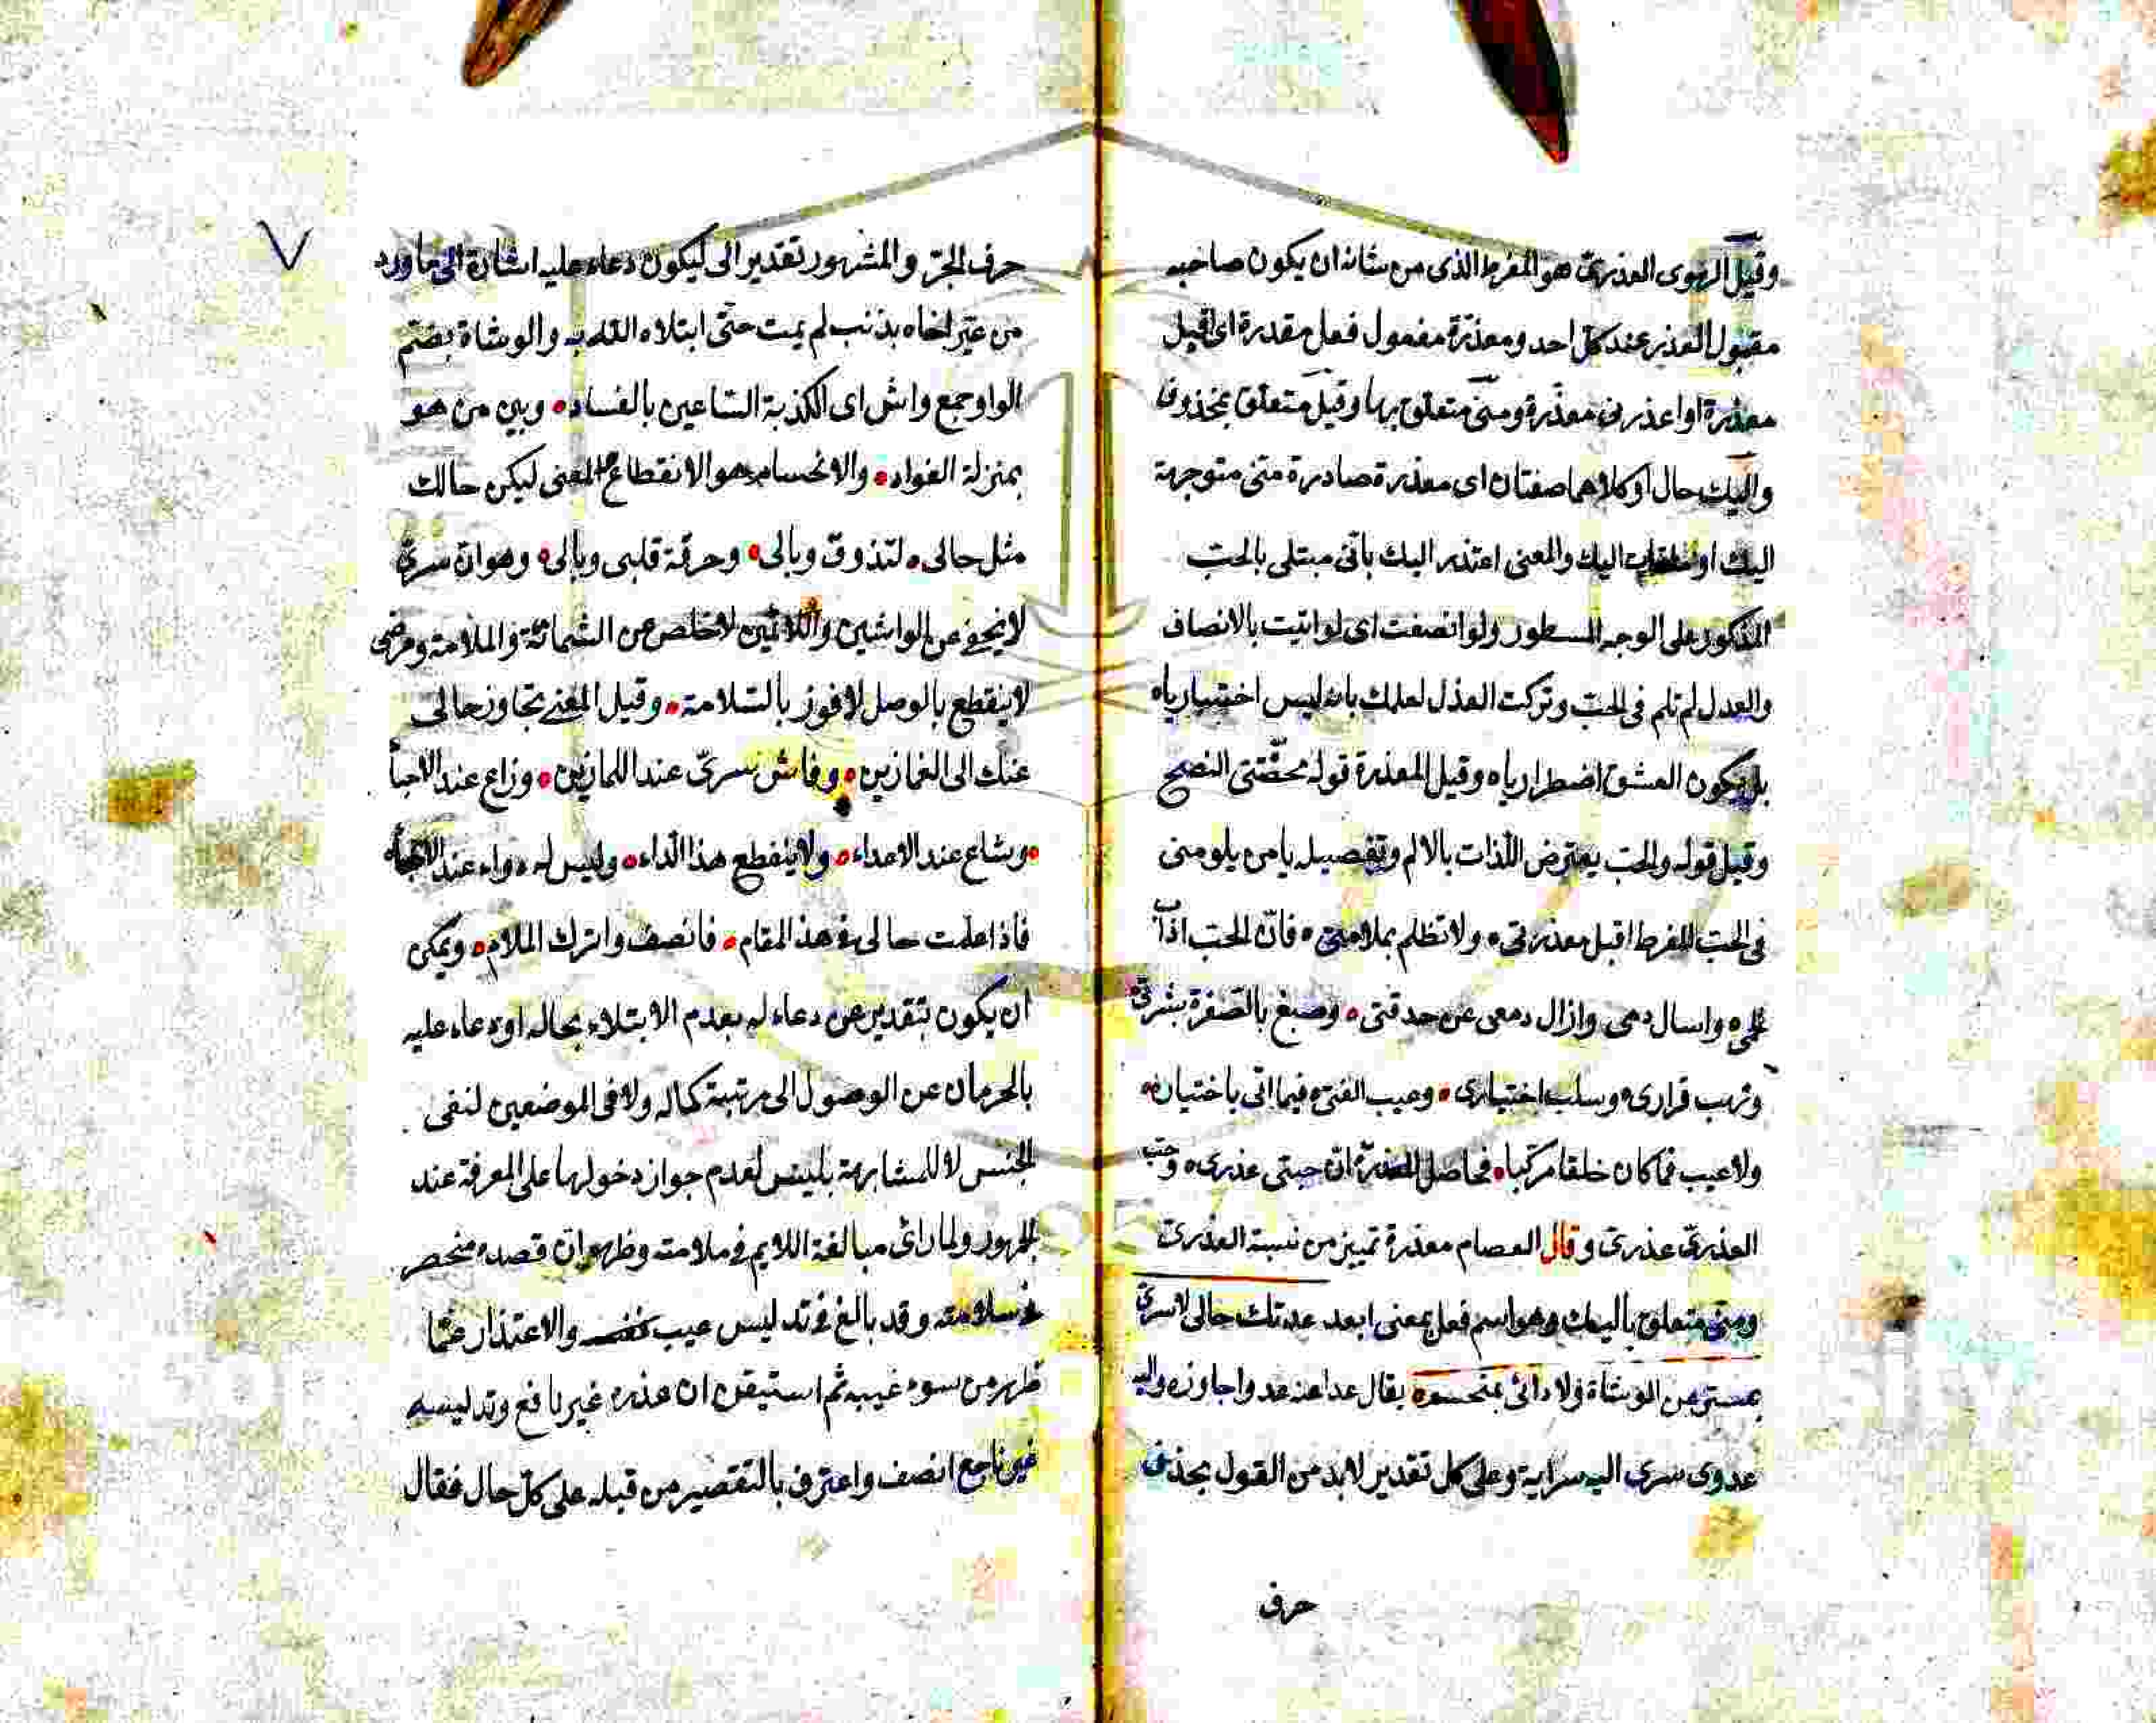 وقيل الهوى العذري هو المفرط الذى من شانه ان يكون صاحبه
مقبول العذر عند كل احد ومعذرة مفعول فعل مقدرة اى اقبل
معذرة او اعذرنى معذرة ومنى متعلق بها وقيل متعلق بمحذوف
واليك حال او كلاهما صفتان اى معذرة صادرة منى متوجهة
اليك او اليك والمعنى اعتذر اليك بانى مبتلى بالحب
المذكور على الوجه المسطور ولو انصفت اى لو اتيت بالانصاف
والعدل لم تلم فى الحب وتركت العذل لعلمك بانه ليس اختياريا
بل يكون العشق اضطراريا وقيل المعذرة قوله محضتنى النصح
وقيل قوله والحب يعترض اللذات بالالم وتفصيله يا من يلومنى
فى الحب المفرط اقبل معذرتى ولا تظلم بملامتى فان الحب اذاب
لحمى واسال دمى وازال دمعى عن حدقتى وصبغ بالصفرة بشرتى
ونهب قرارى وسلب اختيارى وعيب الفتى فيما اتى باختياره
ولا عيب فيما كان خلقا مركبا فحاصل المعذرة ان حبتى عذرى وحب
العذرى عذرى وقال العصام معذرة تمييز من نسبة العذرى
ومنى متعلق باليك وهو اسم فعل بمعنى ابعد عدتك حالى لا سرى
بمستتر عن الوشاة ولا دائى بمنحسم يقال عداعنه عدوا جاوزه واليه
عدوى سرى اليه سراية وعلى كل تقدير لا بد من القول بحذف
حرف
٧
حرف الجر والمشهور تقدير الى ليكون دعاء عليه اشارة الى ما ورد
من عير اخاه بذنب لم يمت حتى ابتلاه الله به والوشاة بضم
الواو جمع واش اى الكذبة الساعين بالفساد وبين من هو
بمنزلة الفواد والانحسام هو الانقطاع المعنى ليكن حالك
مثل حالى لتذوق وبالى وحرقة قلبى وبالى وهو ان سرى
لا يخفى عن الواشين واللائمين لاخلص عن الشماتة والملامة ومرضى
لا ينقطع بالوصل لافوز بالسلامة وقيل المعنى تجاوز حالى
عنك الى الغمازين وفاش سرى عند اللمازين وزاع عند الاحبا
وشاع عند الاعداء ولا ينقطع هذا الداء وليس له دواء عند
فاذا علمت حالى فى هذ المقام فانصف واترك الملام ويمكن
ان يكون بتقدير عن دعاء له بعدم الابتلاء بحاله او دعاء عليه
بالحرمان عن الوصول الى مرتبة كماله ولا فى الموضعين لنفى
الجنس لا للمشابهة بليس لعدم جواز دخولها على المعرفة عند
الجمهور ولما راى مبالغة اللايم فى ملامته وظهر ان قصده منحصر
فى سلامته وقد بالغ فى تدليس عيب نفسه والاعتذار عما
ظهر من سوء غيبه ثم استيقن ان عذره غير نافع وتدليسه
غير ناجع انصف واعترف بالتقصير من قبله على كل حال فقال